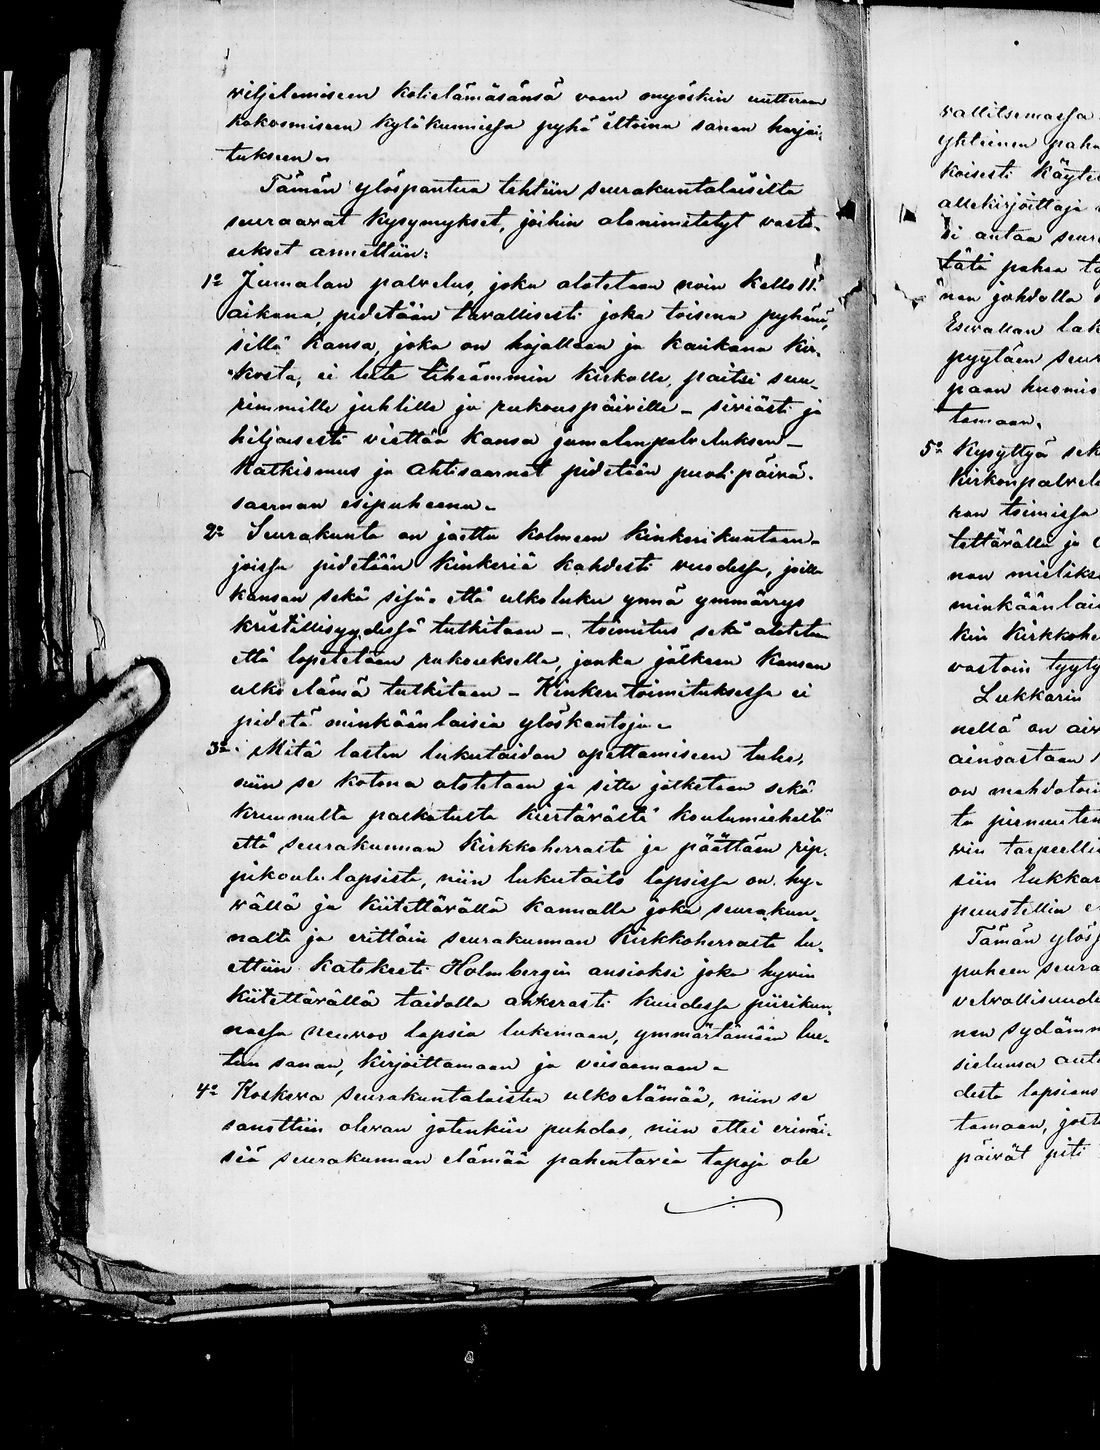 viljelemiseen kotielämäsänsä vaan myöskin uutteraan
kokoomiseen kyläkunnissa pyhä iltoina sanan harjoi-
tukseen.
Tämän ylöspantua tehtiin seurakuntalaisilta
seuraavat kysymykset, joihin alanimitetyt vasta-
ukset annettiin:
1:o Jumalan palvelus, joka alotetaan noin kello 11
aikana, pidetään tavallisesti joka toisena pyhänä,
sillä kansa, joka on hajallaan ja kaukana kir-
kosta, ei tule tiheämmin kirkolle, paitsi suu-
rimmille juhlille ja rukouspäiville – siviästi ja
hiljaisesti viettää kansa jumalanpalveluksen –
Katkismus ja Ahtisaarnat pidetään puolipäivä-
saarnan esipuheena.
2:o Seurakunta on jaettu kolmeen kinkerikuntaan –
joissa pidetään kinkeriä kahdesti vuodessa, joilla
kansan sekä sisä- että ulkoluku ynnä ymmärrys
kristillisyydessä tutkitaan – toimitus sekä alotetaan
että lopetetaan rukouksella, jonka jälkeen kansan
ulko elämä tutkitaan – Kinkeritoimituksessa ei
pidetä minkäänlaisia ylöskantoja.
3:o Mitä lasten lukutaidon opettamiseen tulee,
niin se kotona alotetaan ja sitte jatketaan sekä
kruunulta palkatulta kiertävältä koulumieheltä
että seurakunnan Kirkkoherrasta ja päättäen rip-
pikoululapsista, niin lukutaito lapsissa on hy-
vällä ja kiitettävällä kannalla joka seurakun-
nalta ja erittäin seurakunnan Kirkkoherrasta lu-
ettiin Katekeeti Holmbergin ansioksi joka hyvin
kiitettävällä taidolla ahkerasti kuudessa piirikun-
nassa neuvoo lapsia lukemaan, ymmärtämään lue-
tun sanan, kirjoittamaan ja veisaamaan.
4:o Koskeva seurakuntalaisten ulkoelämää, niin se
sanottiin olevan jotenkin puhdas, niin ettei erinäi-
siä seurakunnan elämää pahentavia tapoja ole
vallitsemassa
yhteinen paha
koisesti käyte
allekirjoittaja
si antaa seur
tätä pahaa
nan johdolla
Esivallan lak
pyytäen seur
paan huomio
tamaan.
5:o Kysyttyä sek
Kirkonpalvel
han toimissa
tettävällä ja
nan mieliks
minkäänlais
kin Kirkkohe
vastain tyyty
Lukkarin
nellä on
ainoastaan
on mahdotoin
ta
vin tarpeelli
siin Lukkar
puustellin
Tämän ylösp
puheen seura
velvollisuude
nen sydämm
sielunsa
desta lapsians
tamaan, jost
päivät piti